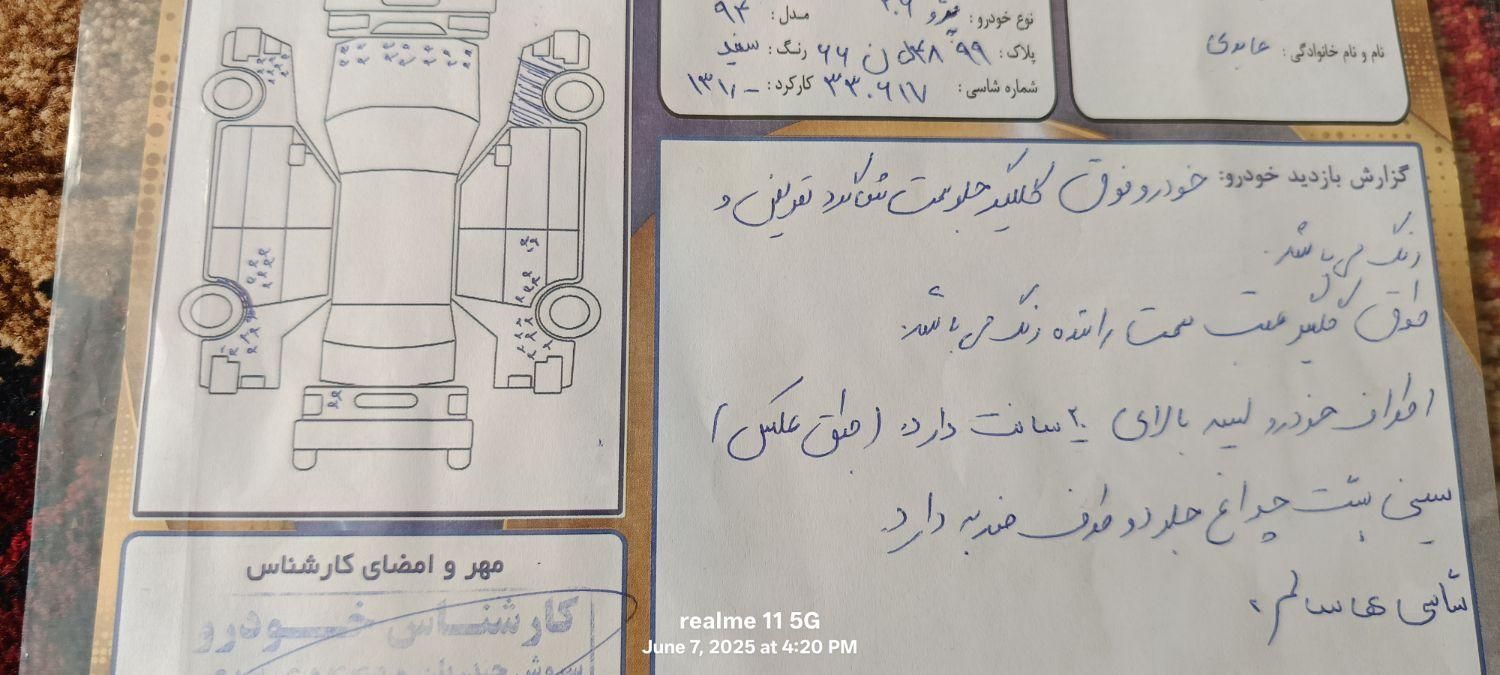 نوع خودرو: پژو ۲۰۶ مدل: ۹۴
پلاک: ۹۹ ۵۴۸ ن ۶۶ رنگ: سفید
شماره شاسی: ۳۳۰۶۱۷ کارکرد: ۱۳۱/-
نام و نام خانوادگی: عابدی
گزارش بازدید خودرو: خودرو فوق گلگیر جلو سمت شاگرد تعویض و
رنگ می باشد.
طوق گلگیر عقب سمت راننده رنگ می باشد.
اطراف خودرو لیسه بالای ۲۰ سانت دارد. (طبق عکس)
سینی پشت چراغ جلو دو طرف ضربه دارد.
شاسی ها سالم.
مهر و امضای کارشناس
کارشناس خودرو
realme 11 5G
June 7, 2025 at 4:20 PM